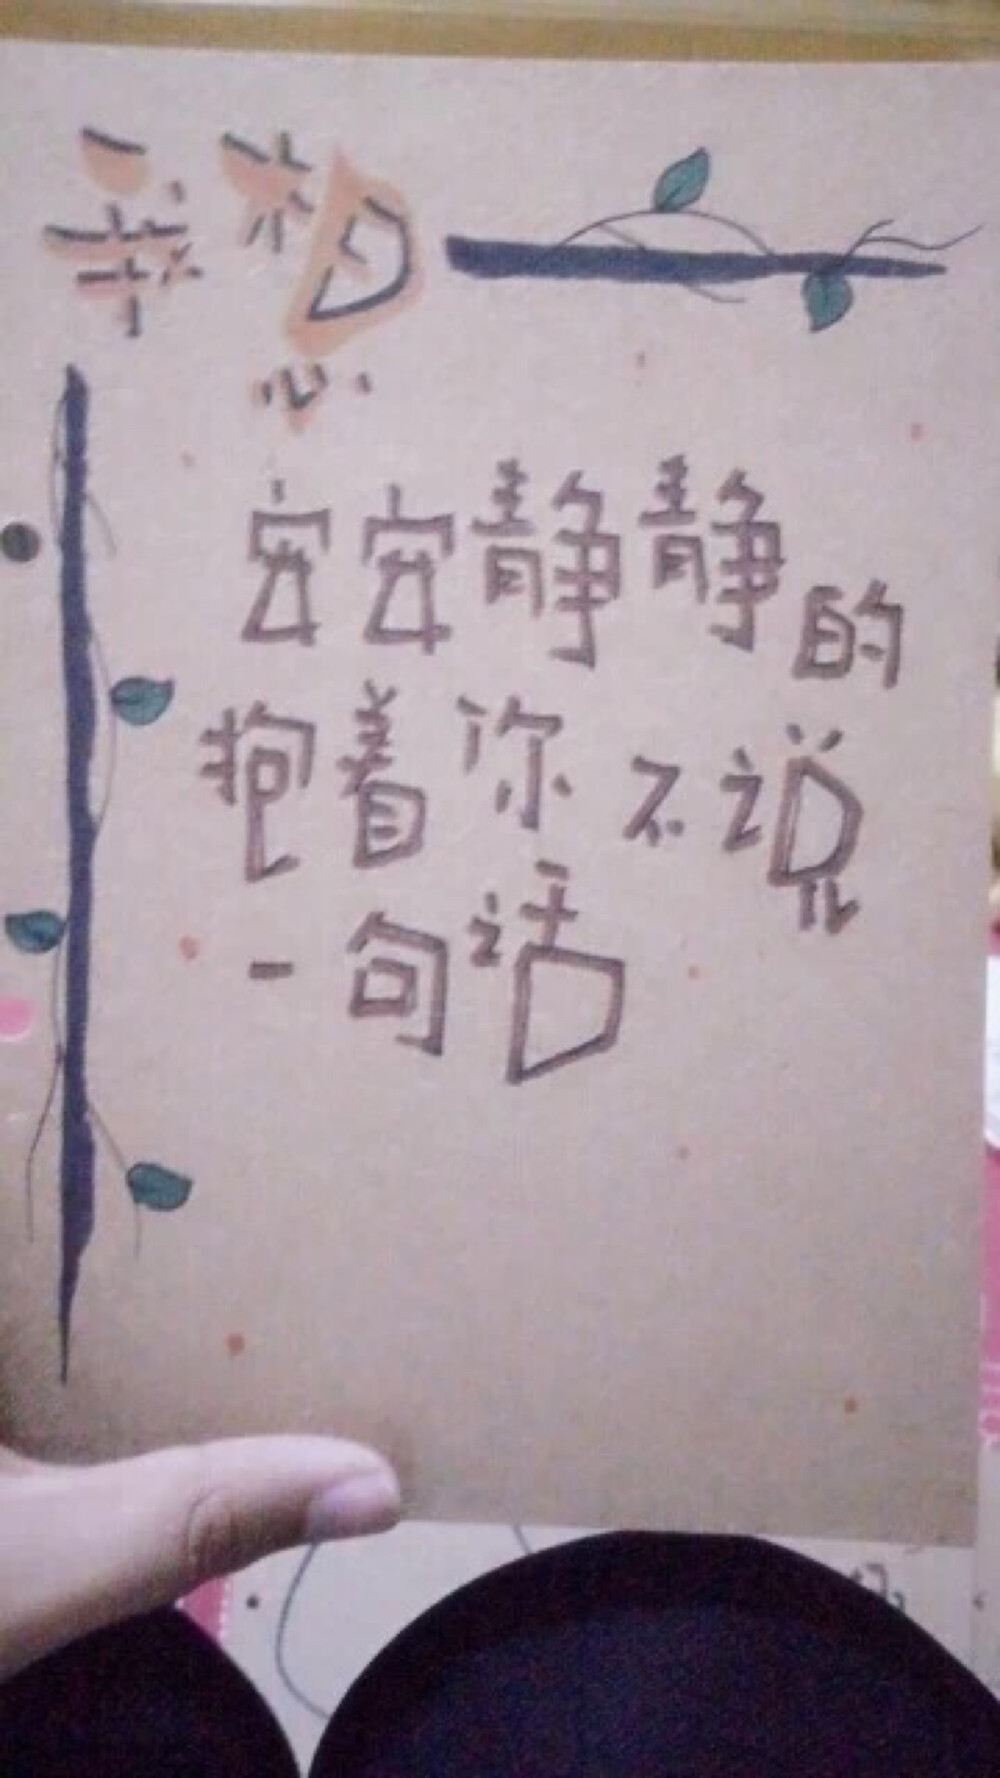 想
安安静静的
抱着你不说
一句话